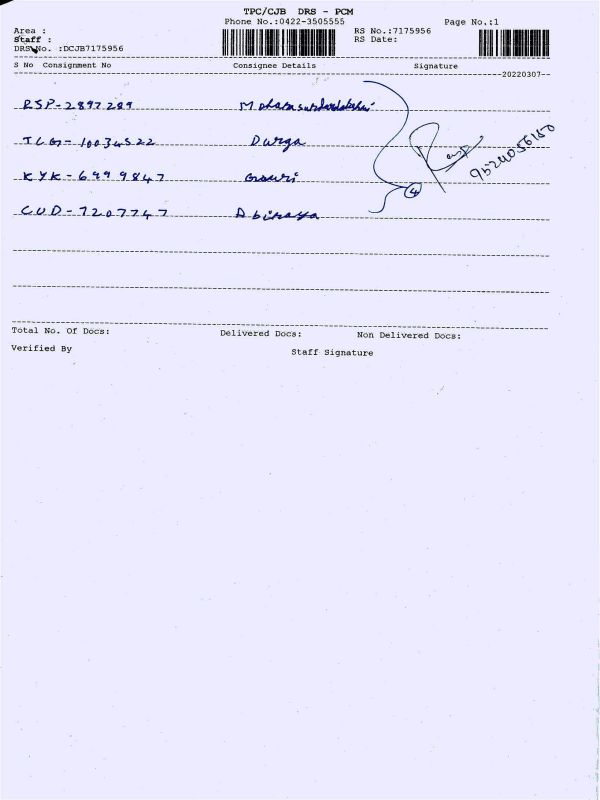 TPC/CJB DRS - PCM
Phone No.:0422-3505555
Page No.:1
Area :
RS No.:7175956
Staff :
RS Date:
DRS No. :DCJB7175956
S No Consignment No Consignee Details Signature
20220307
RSP-2897289
TCG-10034522 Durga
KYK-6999847 Gowri
CUD-7207747 Abinaya
4
Total No. Of Docs: Delivered Docs: Non Delivered Docs:
Verified By Staff Signature